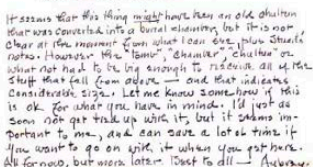 It seems that this thing might have been an old chultun
that was converted into a burial chamber, but it is not
clear at the moment from what I can see, plus Stuart's
notes. However, the "tomb", "chamber", "chultun" or
what not had to be big enough to receive all of the
stuff that fell from above — and that indicates
considerable size. Let me know somehow if this
is OK for what you have in mind. I'd just as
soon not get tied up with it, but it seems im-
portant to me, and can save a lot of time if
you want to go on with it when you get here.
All for now, but more later. Best to all —